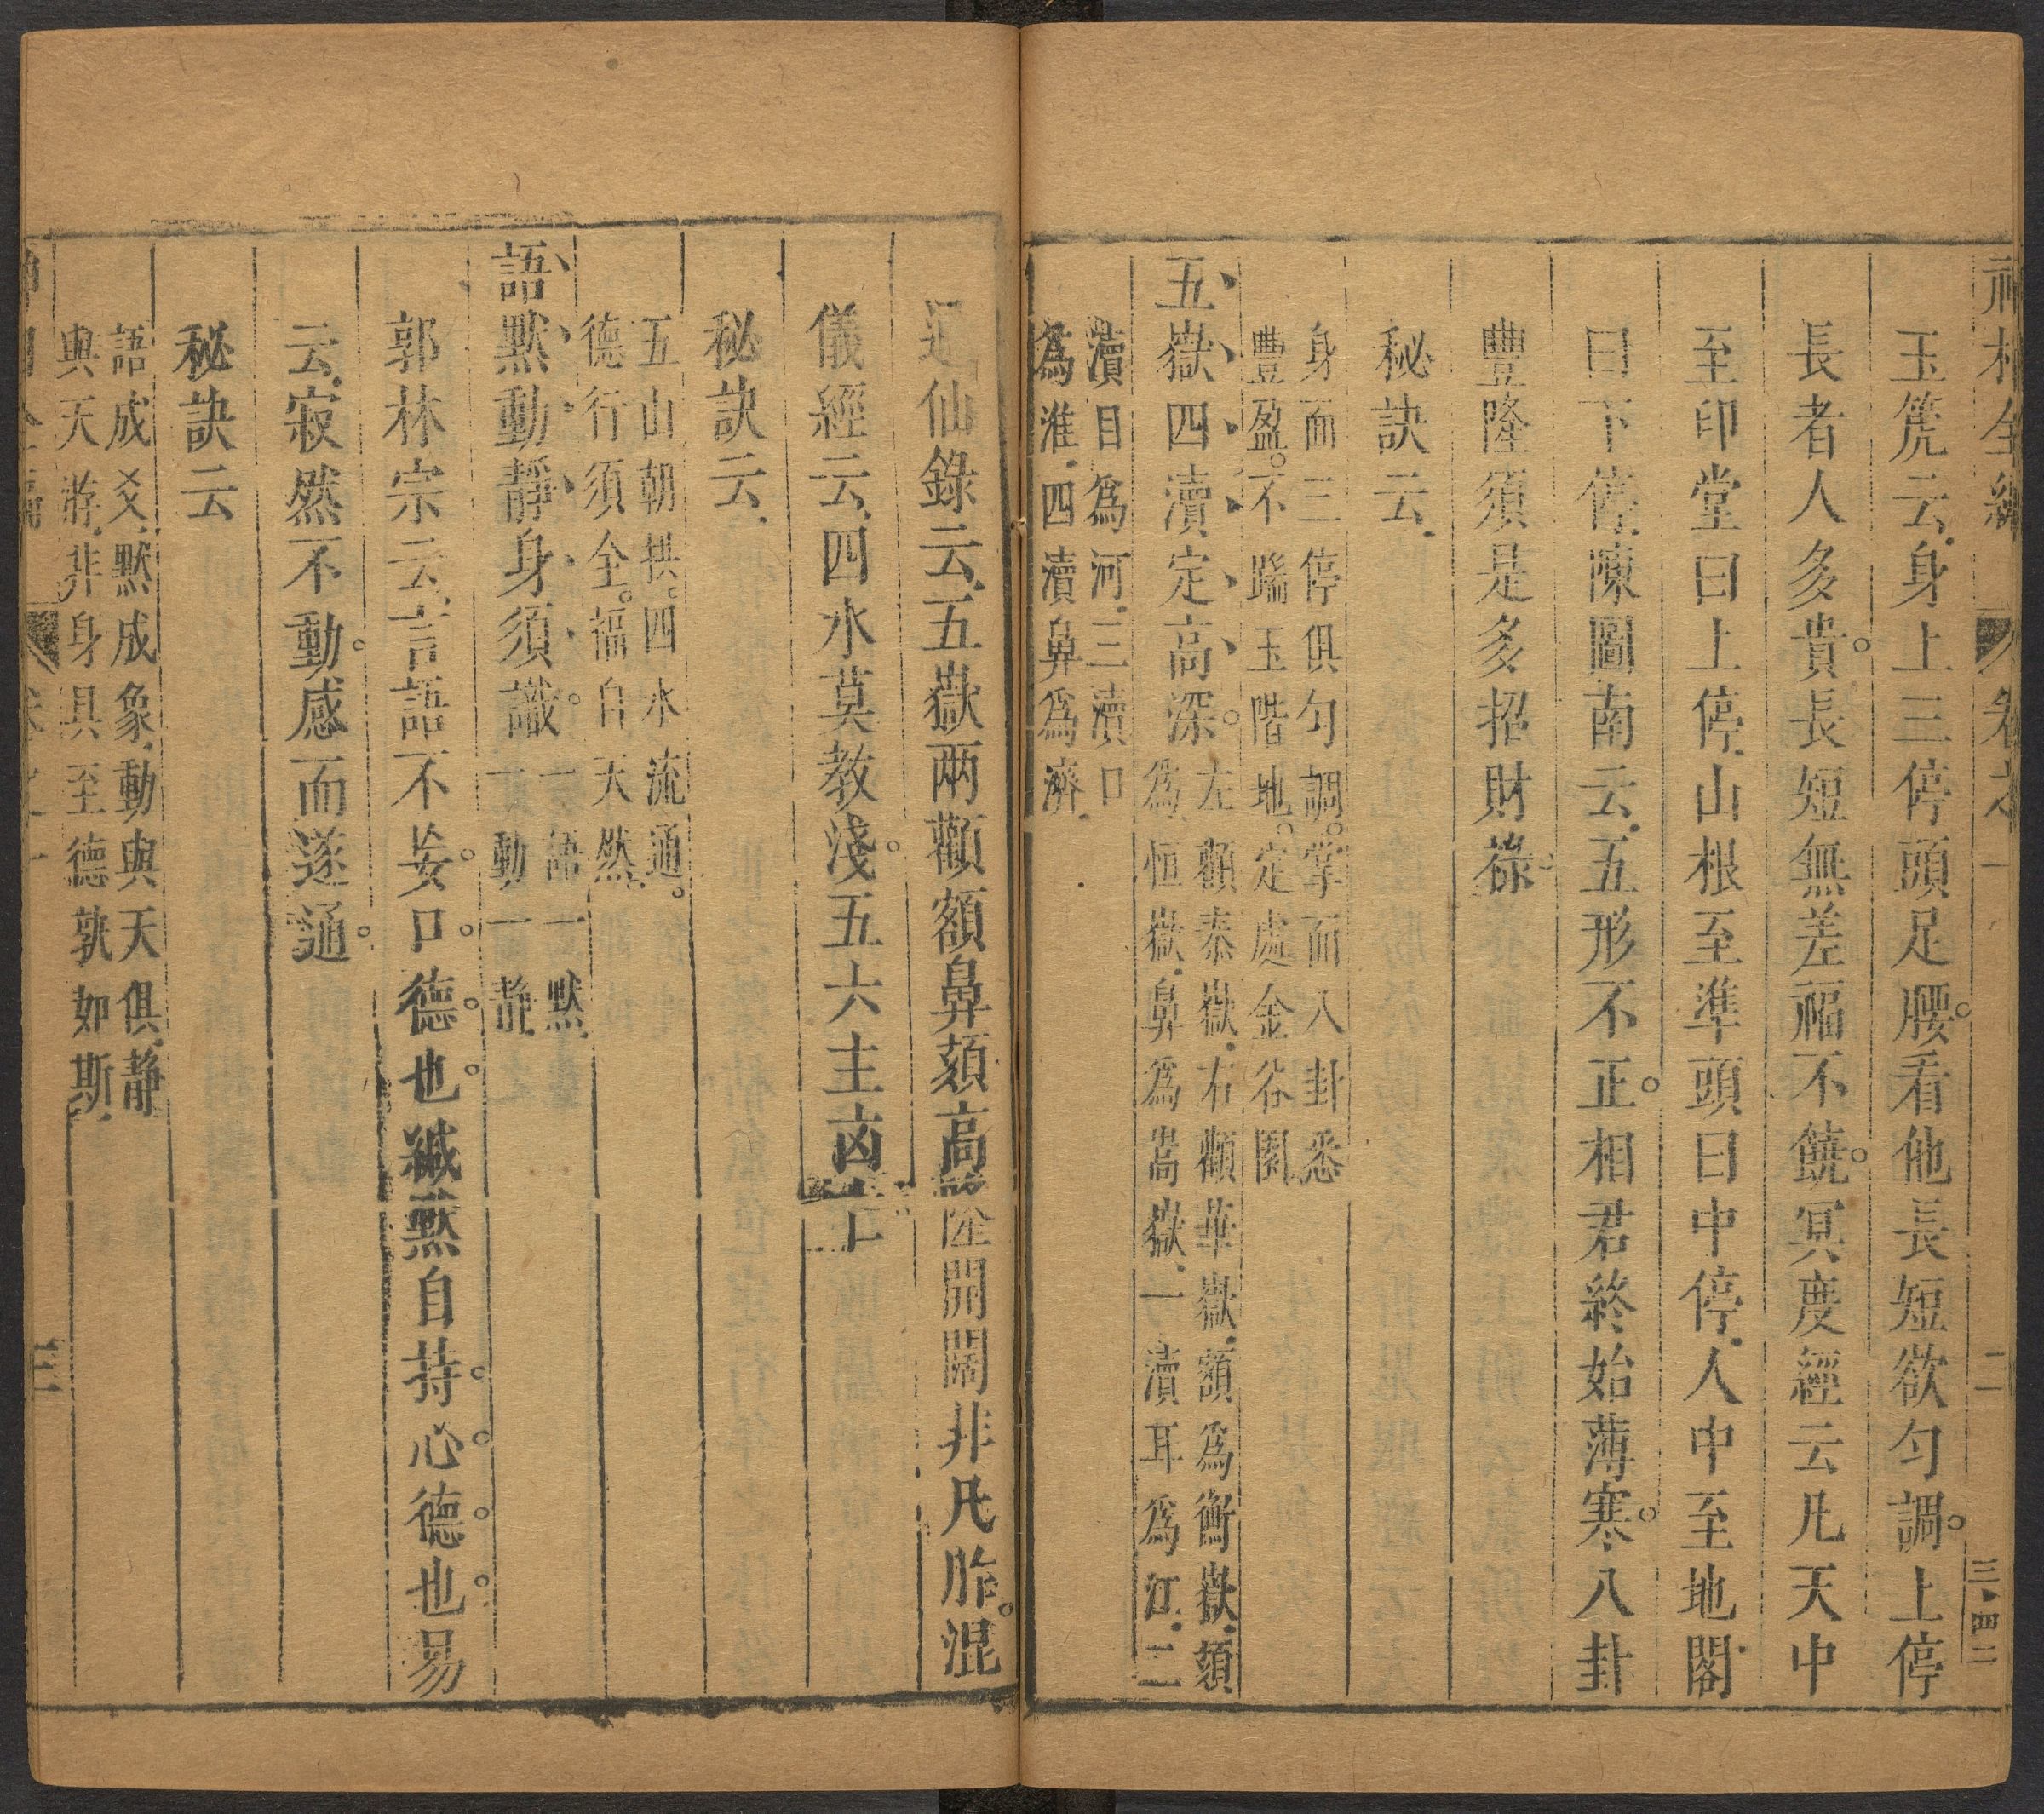 神相全編 卷之一 二 三·四二
玉篼云身上三停頭足腰看他長短欲勻調上停
長者人多貴長短無差福不饒冥度經云凡天中
至印堂曰上停山根至準頭曰中停人中至地閣
曰下停陳圖南云五形不正相君終始薄寒八卦
豐隆須是多招財祿
秘訣云
身面三停俱勻調掌面八卦悉
豐盈不踹玉階地定處金谷園
五嶽四瀆定高深
左顴泰嶽右顴華嶽額爲衡嶽頦
爲恒嶽鼻爲嵩嶽一瀆耳爲江二
瀆目爲河三瀆口
爲淮四瀆鼻爲濟
仙錄云五嶽兩顴額鼻頦高隆開闊非凡胎混
儀經云四水莫教淺五六主凶亡
秘訣云
五山朝拱四水流通
德行須全福自天然
語默動靜身須識
一語一默
一動一靜
郭林宗云言語不妄口德也緘默自持心德也易
云寂然不動感而遂通
秘訣云
語成爻默成象動與天俱靜
與天游非身具至德孰如斯
神相全編 卷之一 三